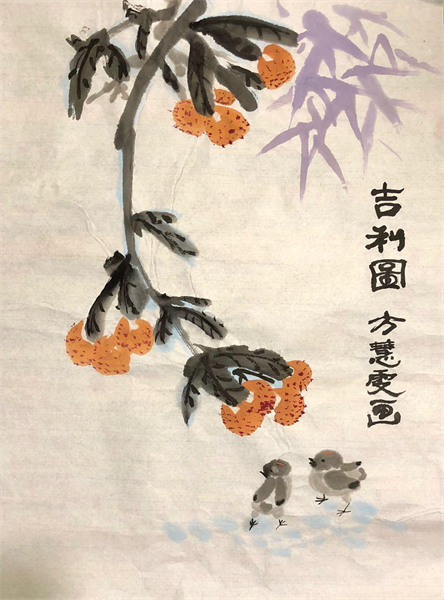 吉利圖 方慧雯画